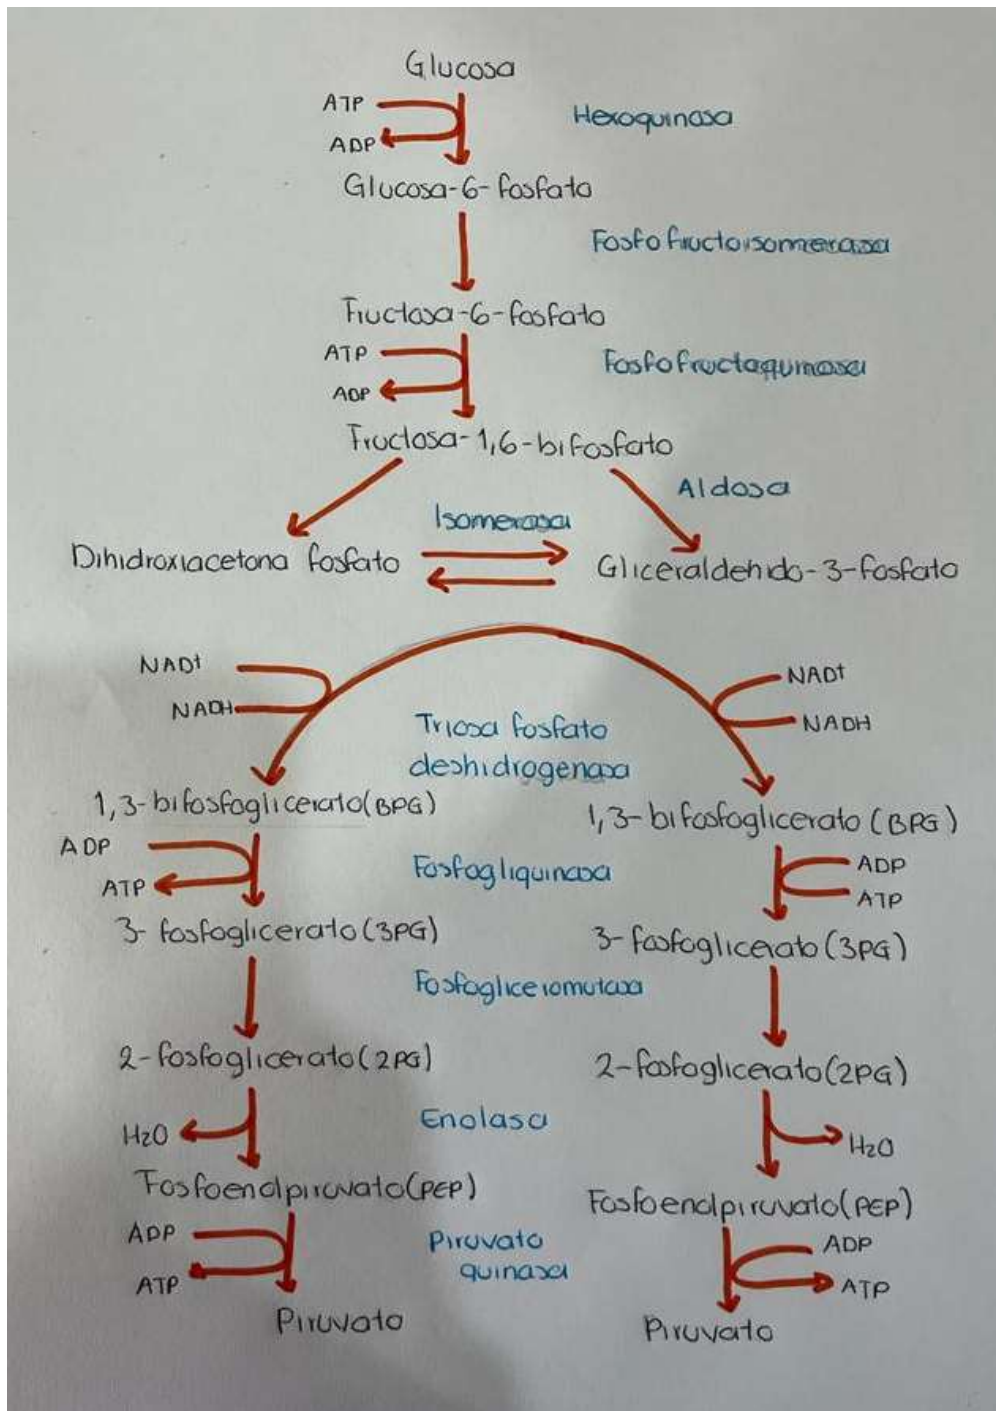 Glucosa
ATP
Hexoquinasa
ADP
Glucosa-6-fosfato
Fosfofructoisomerasa
Fructosa-6-fosfato
ATP
Fosfofructoquinasa
ADP
Fructosa-1,6-bifosfato
Aldosa
Isomerasa
Dihidroxiacetona fosfato
Gliceraldehido-3-fosfato
NAD+
NAD+
NADH
NADH
Triosa fosfato
deshidrogenasa
1,3-bifosfoglicerato(BPG)
1,3-bifosfoglicerato (BPG)
ADP
ADP
Fosfogliquinasa
ATP
ATP
3-fosfoglicerato(3PG)
3-fosfoglicerato(3PG)
Fosfogliceromutasa
2-fosfoglicerato(2PG)
2-fosfoglicerato(2PG)
Enolasa
H2O
H2O
Fosfoenolpiruvato(PEP)
Fosfoenolpiruvato(PEP)
ADP
ADP
Piruvato
quinasa
ATP
ATP
Piruvato
Piruvato